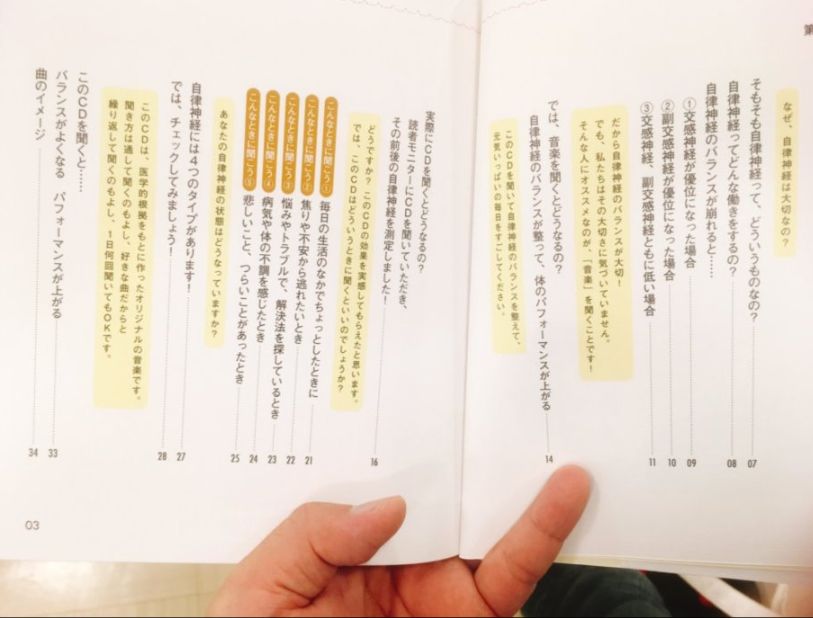 第
なぜ、自律神経は大切なの？
そもそも自律神経って、どういうものなの？ 07
自律神経ってどんな働きをするの？ 08
自律神経のバランスが崩れると……
①交感神経が優位になった場合 09
②副交感神経が優位になった場合 10
③交感神経、副交感神経ともに低い場合 11
だから自律神経のバランスが大切！
でも、私たちはその大切さに気づいていません。
そんな人にオススメなのが、「音楽」を聞くことです！
では、音楽を聞くとどうなるの？
自律神経のバランスが整って、体のパフォーマンスが上がる 14
このCDを聞いて自律神経のバランスを整えて、
元気いっぱいの毎日をすごしてください。
実際にCDを聞くとどうなるの？
読者モニターにCDを聞いていただき、
その前後の自律神経を測定しました！ 16
どうですか？このCDの効果を実感してもらえたと思います。
では、このCDはどういうときに聞くといいのでしょうか？
こんなときに聞こう① 毎日の生活のなかでちょっとしたときに 21
こんなときに聞こう② 焦りや不安から逃れたいとき 22
こんなときに聞こう③ 悩みやトラブルで、解決法を探しているとき 23
こんなときに聞こう④ 病気や体の不調を感じたとき 24
こんなときに聞こう⑤ 悲しいこと、つらいことがあったとき 25
あなたの自律神経の状態はどうなっていますか？
自律神経には4つのタイプがあります！ 27
では、チェックしてみましょう！ 28
このCDは、医学的根拠をもとに作ったオリジナルの音楽です。
聞き方は通して聞くのもよし、好きな曲だからと
繰り返して聞くのもよし、1日何回聞いてもOKです。
このCDを聞くと……
バランスがよくなる パフォーマンスが上がる 33
曲のイメージ 34
03